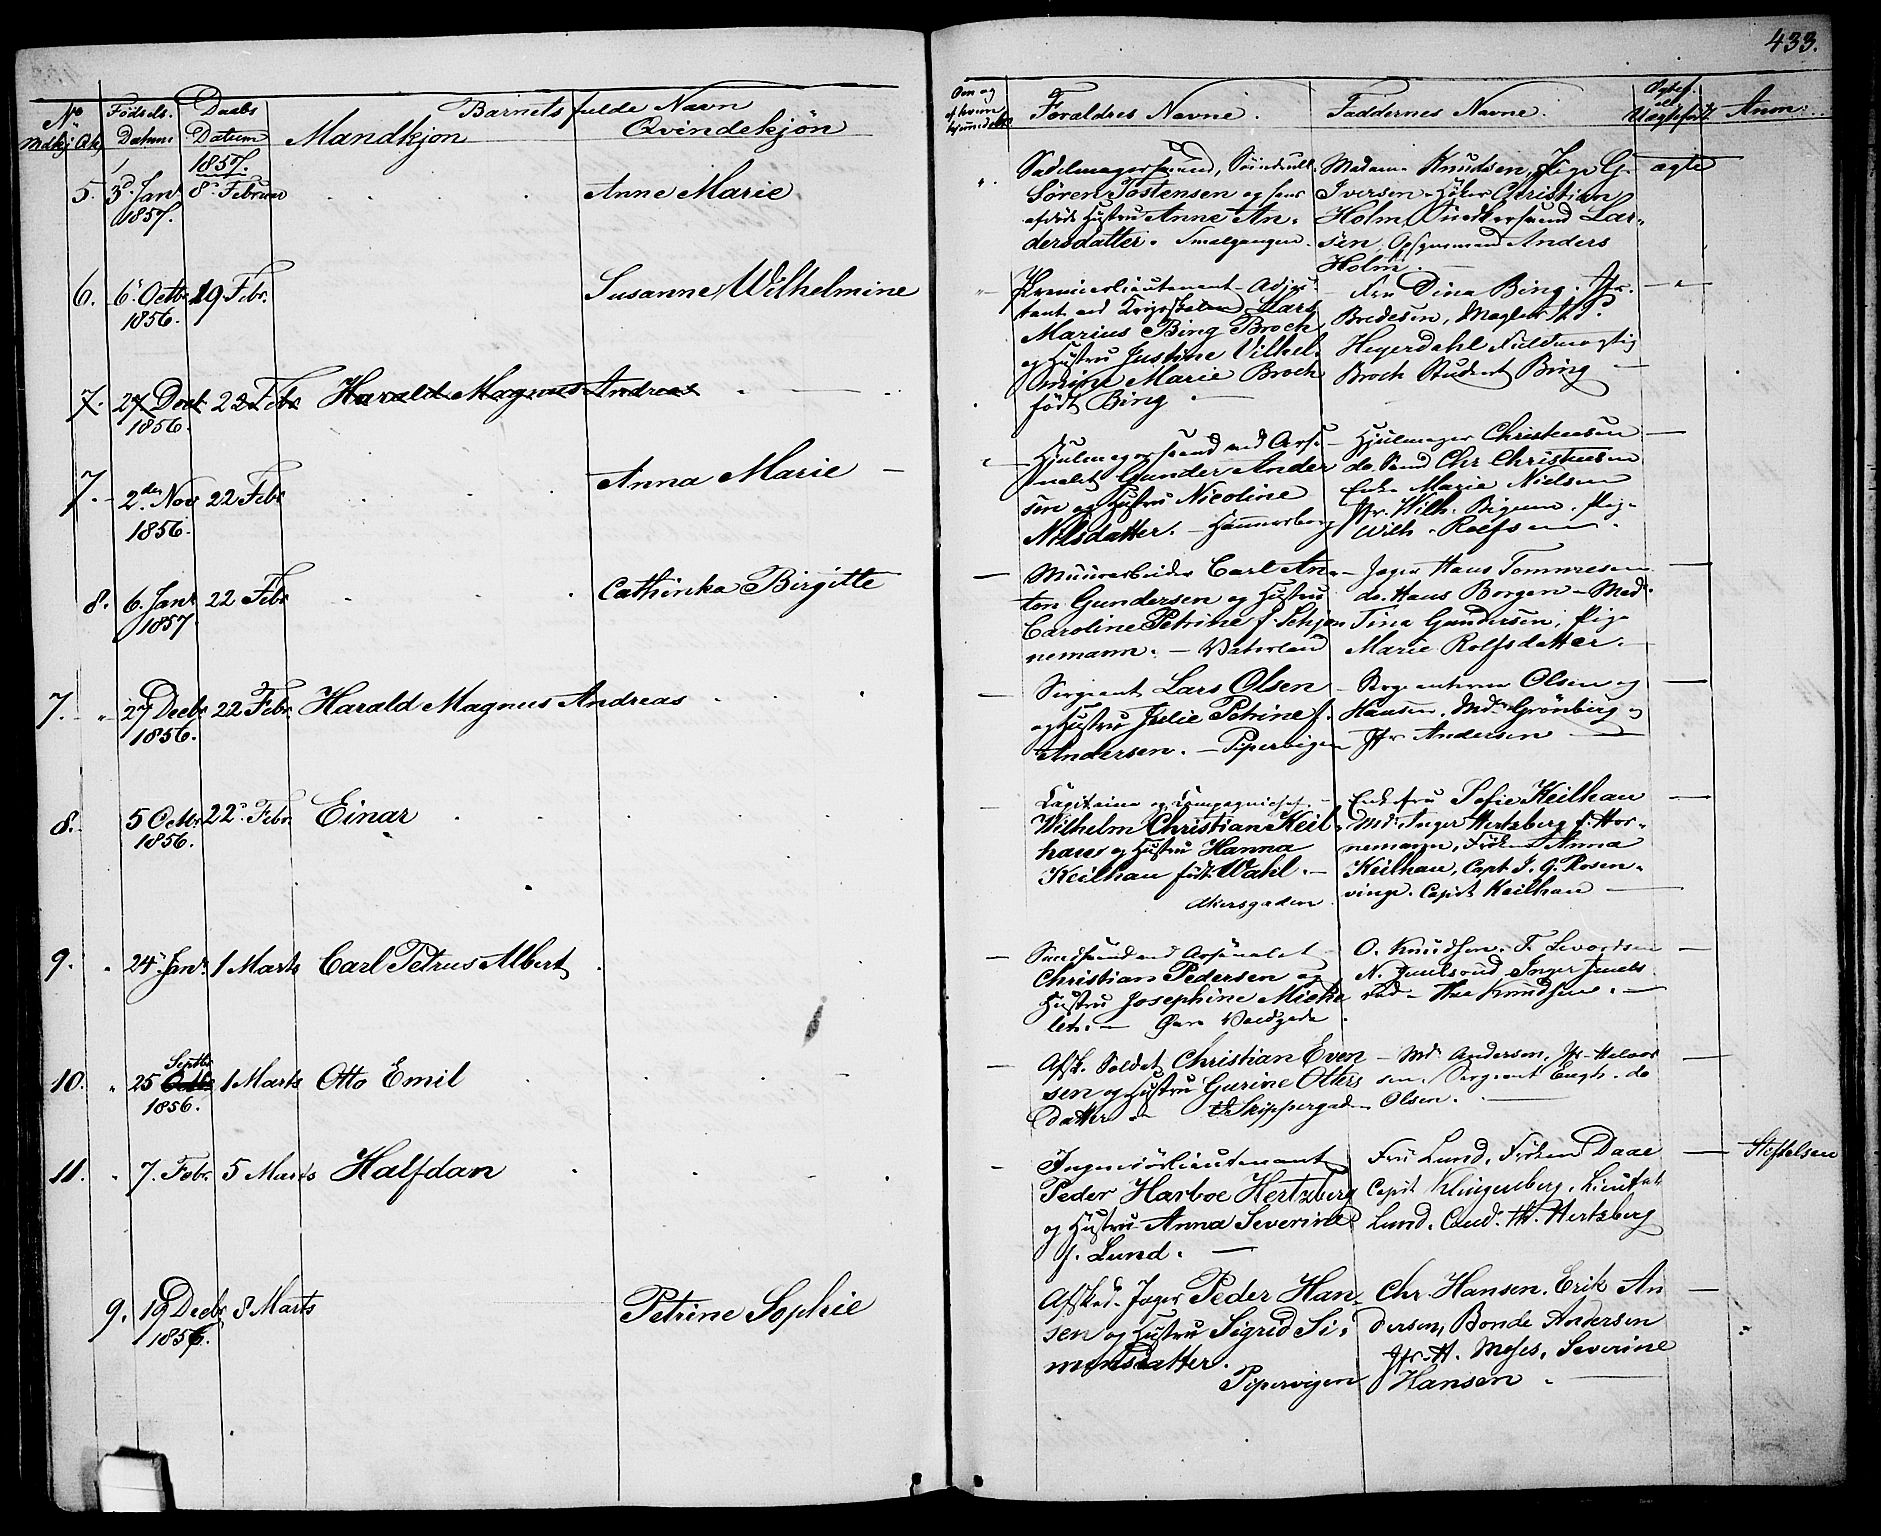 433.
No Mdkj. Qk. Fødsels Datum Daabs Datum Barnets fulde Navn
Mandkjøn Qvindekjøn
Om og af hvem hjemmedøbt Forældres Navne. Faddernes Navne. Ægtef. el. Uægtefødt Anm:
1857.
5. 3 Jan 1857. 8 Februar Anne Marie
Sadelmagersvend,
Søren Tostensen og hans
afdøde Hustru Anne An-
dersdatter. Smalgangen.
Madam Knudsen, Pige G.
Iversen Høker Christian
Holm, Snedkersvend Lar-
sen, Opsynsmand Anders
Holm.
ægte
6. 6 Octbr 1856. 19 Febr. Susanne Wilhelmine
Premierlieutenant Adju-
tant ved Krigsskolen Lars
Marius Bing Broch
og Hustru Justine Vilhel-
mine Marie Broch
født Bing.
Fru Dina Bing. Jfr.
Bredesen, Mægler H. P.
Heyerdahl Fuldmægtig
Broch Student Bing
7. 27 Decbr 1856. 22 Febr Harald Magnus Andreas
7. 2den Nov 1856. 22 Febr Anna Marie
Hjulmagersvend ved Arse-
nalet Gunder Ander
sen og Hustru Nicoline
Nilsdatter. Hammersborg
Hjulmager Christensen
do. Svend Chr Christensen
Enke Marie Nielsen
Jfr. Wilh. Bigum. Pige
Wilh. Rolfsen.
8. 6. Janr 1857 22 Febr Cathinka Birgitte
Muurarbeider Carl An-
ton Gundersen og Hustru
Caroline Petrine f. Schjøn
nemann. Vaterland
Jæger Hans Tommesen
do. Hans Borgen Mad.
Tina Gundersen, Pige
Marie Rolfsdatter.
7. 27 Decbr 1856. 22 Febr. Harald Magnus Andreas
Sergeant Lars Olsen
og Hustru Julie Petrine f.
Andersen. Pipervigen
Sergeanterne Olsen og
Hansen. Md. Grönberg
Jfr Andersen
8. 5 Octbr 1856. 22 Febr. Einar
Capitaine og Compagniechef
Wilhelm Christian Keil-
hau og Hustru Hanna
Keilhau født Wahl.
Akersgaden
Enkefru Sofie Keilhau
Md. Inger Hertzberg f. Hor-
nemann, Frøken Anna
Keilhau, Capt J. G. Rosen-
vinge. Capit Keilhau
9. 24 Janr. 1 Marts Carl Petrus Albert
Smedsvend ved Arsenalet
Christian Pedersen og
Hustru Josephine Miche
let. Øvre Voldgade
O. Knudsen. T. Sevardsen
N. Juulsrud Inger Juuls
rud Knudsen.
10. 25 Septbr 1856. 1 Marts Otto Emil
Afsk. Soldat Christian Even
sen og Hustru Gurine Olters
datter Skippergad
Md. Andersen, Jfr Halvor
sen. Sergeant Engh. do
Olsen.
11. 7. Febr. 5 Marts Halfdan
Ingeniörlieutenant
Peder Harboe Hertzberg
og Hustru Anna Severine
f. Lund.
Fru Lund, Frøken Daae
Capit Klingenberg, Lieutnt
Lund. Cand. Th. Hertzberg
Stiftelsen
9. 19 Decbr 1856. 8 Marts Petrine Sophie
Afsked. Jæger Peder Han-
sen og Hustru Sigrid Si-
mensdatter.
Pipervigen
Chr. Hansen. Erik An
dersen, Bonde Andersen
Jfr. H. Moses, Severine
Hansen